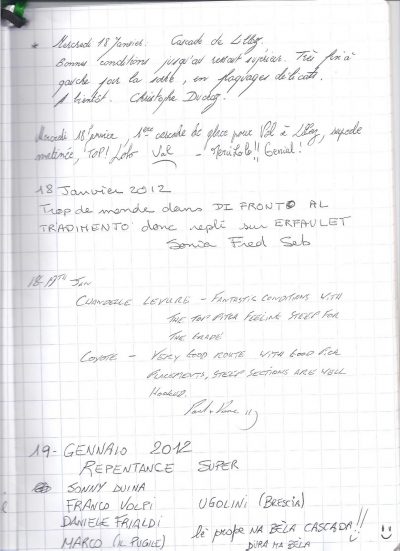 * Mercredi 18 Janvier. Cascade de Lillaz.
Bonnes conditions jusqu'au ressaut supérieur. Très fin à
gauche pour la sortie, en plaquages délicats.
A bientôt. Christophe
Mercredi 18 Janvier, 1ère cascade de glace pour Val à Lillaz, superbe
matinée, TOP! Lolo Val - Merci Lolo!! Génial!
18 Janvier 2012
Trop de monde dans DI FRONTE AL
TRADIMENTO donc repli sur ERFAULET
Sonia Fred Seb
Jan
CHANDELLE LEVURE - FANTASTIC CONDITIONS WITH
THE TOP PITCH FEELING STEEP FOR
THE GRADE
COYOTE - VERY GOOD ROUTE WITH GOOD PICK
PLACEMENTS, STEEP SECTIONS ARE WELL
HOOKED.
19 - GENNAIO 2012
REPENTANCE SUPER
SONNY DUINA
FRANCO VOLPI UGOLINI (BRESCIA)
DANIELE FRIALDI
MARCO (IL PUGILE) lè prope NA BÈLA CASCADA!!
DURA MA BÈLA